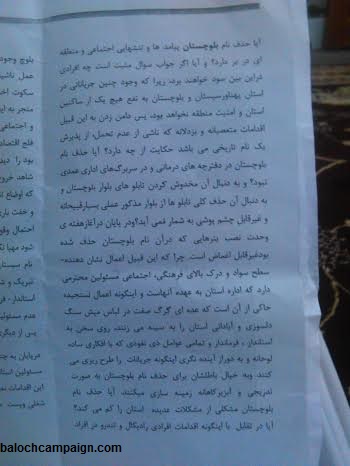 آیا حذف نام بلوچستان پیامد ها و تنشهایی اجتماعی و منطقه
ای در بر دارد؟ و آیا اگر جواب سوال مثبت است چه افرادی
دراین بین سود خواهند برد، زیرا که وجود چنین جریاناتی در
استان پهناورسیستان و بلوچستان به نفع هیچ یک از ساکنین
استان و امنیت منطقه نخواهد بود، پس دامن زدن به این قبیل
اقدامات متعصبانه و بزدلانه که ناشی از عدم تحمل، از پذیرش
یک نام تاریخی می باشد حکایت از چه دارد؟ آیا حذف نام
بلوچستان در دفترچه های درمانی و در سربرگهای اداری عمدی
نبود؟ و به دنبال آن مخدوش کردن تابلو های بلوار بلوچستان و
به دنبال آن حذف کلی تابلو ها از بلوار مذکور عملی بسیارقبیحانه
و غیرقابل چشم پوشی به شمار نمی آید؟ودر پایان درآغازهفته ی
وحدت نصب بنرهایی که درآن نام بلوچستان حذف شده
بودغیرقابل اغماض است. چرا که این قبیل اعمال نشان دهنده-
سطح سواد و درک بالای فرهنگی، اجتماعی مسئولین محترمی
دارد که اداره استان به عهده آنهاست و اینگونه اعمال نسنجیده
حاکی از آن است که عده ای گرگ صفت در لباس میش سنگ
دلسوزی و آبادانی استان را به سینه می زنند، روی سخن به
استاندار ، فرماندار و تمامی عوامل ذی نفوذی که با افکاری ساده
لوحانه و به دوراز آینده نگری اینگونه جریانات را طرح ریزی می
کنند وبه خیال باطلشان برای حذف نام بلوچستان به صورت
تدریجی و آبزیرکاهانه زمینه سازی میکنند، آیا حذف نام
بلوچستان مشکلی از مشکلات عدیده استان را کم می کند؟
آیا در تقابل با اینگونه اقدامات افرادی رادیکال و تندرو در افراد
بلوچ وجود
عمل ناشی
منجر به ای
و اجتماعی
بود را
شاهد
که اوضاع
و خفت بار
احتمال وقو
شود مهیا
نام سیستا
تبریک و ش
استاندار ، فر
عدم مسئولی
پس از دیگری
درپایان به
مسئولین استا
این اقدامات
شغلی وپست
balochcampaign.com